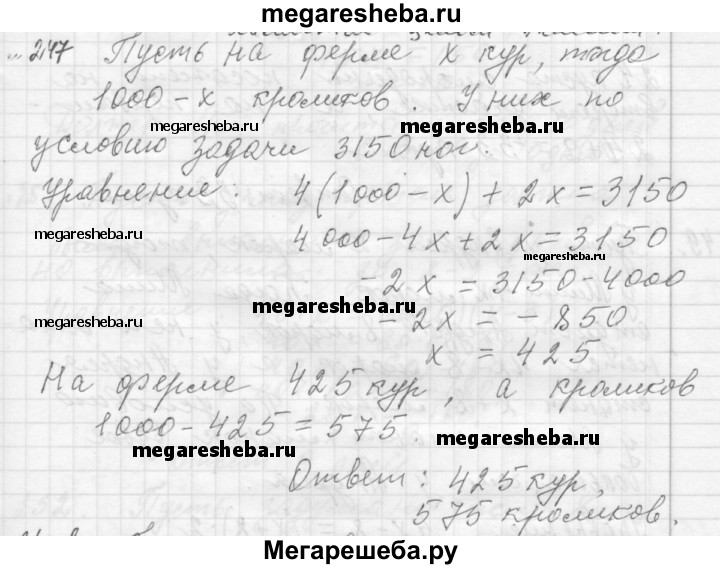 megaresheba.ru
247 Пусть на ферме x кур, тогда
1000 - x кроликов. У них по
megaresheba.ru megaresheba.ru
условию задачи 3150 ног.
Уравнение: 4(1000 - x) + 2x = 3150
megaresheba.ru
4000 - 4x + 2x = 3150
megaresheba.ru
- 2x = 3150 - 4000
megaresheba.ru
megaresheba.ru
- 2x = - 850
x = 425
На ферме 425 кур, а кроликов
1000 - 425 = 575.
megaresheba.ru
megaresheba.ru
Ответ: 425 кур,
megaresheba.ru
575 кроликов.
Мегарешеба.ру